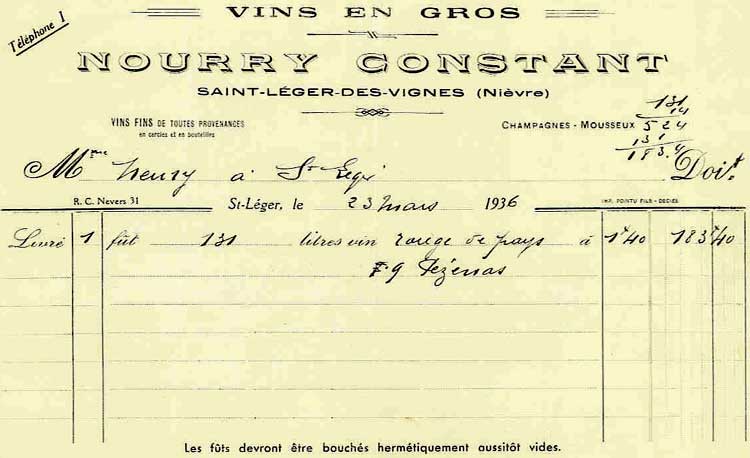 Téléphone 1
VINS EN GROS
NOURRY CONSTANT
SAINT-LÉGER-DES-VIGNES (Nièvre)
VINS FINS DE TOUTES PROVENANCES
en cercles et en bouteilles
CHAMPAGNES - MOUSSEUX
131
14
524
131
183.4
Mme henry à St Léger Doit
R. C. Nevers 31
St-Léger, le 23 mars 1936
IMP. POINTU FILS - DECIZE
Livré 1 fût 131 litres vin rouge de pays à 1f40 183f40
Pézenas
Les fûts devront être bouchés hermétiquement aussitôt vides.